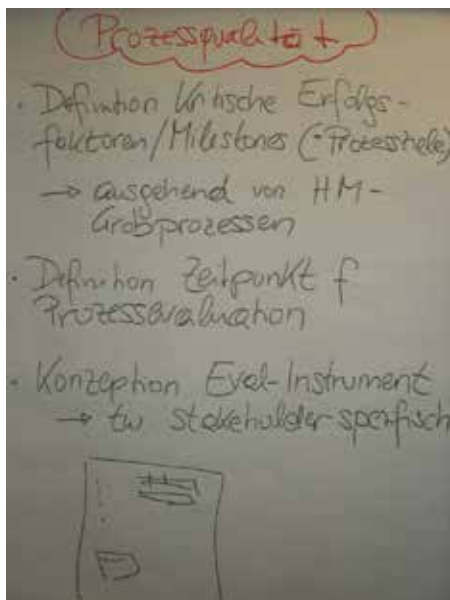 Prozessqualität
· Definition Kritische Erfolgs-
faktoren/Milestones (·Prozessziele)
→ ausgehend von HM-
Großprozessen
· Definition Zeitpunkt f
Prozessevaluation
· Konzeption Eval-Instrument
→ tw stakeholder spezifisch